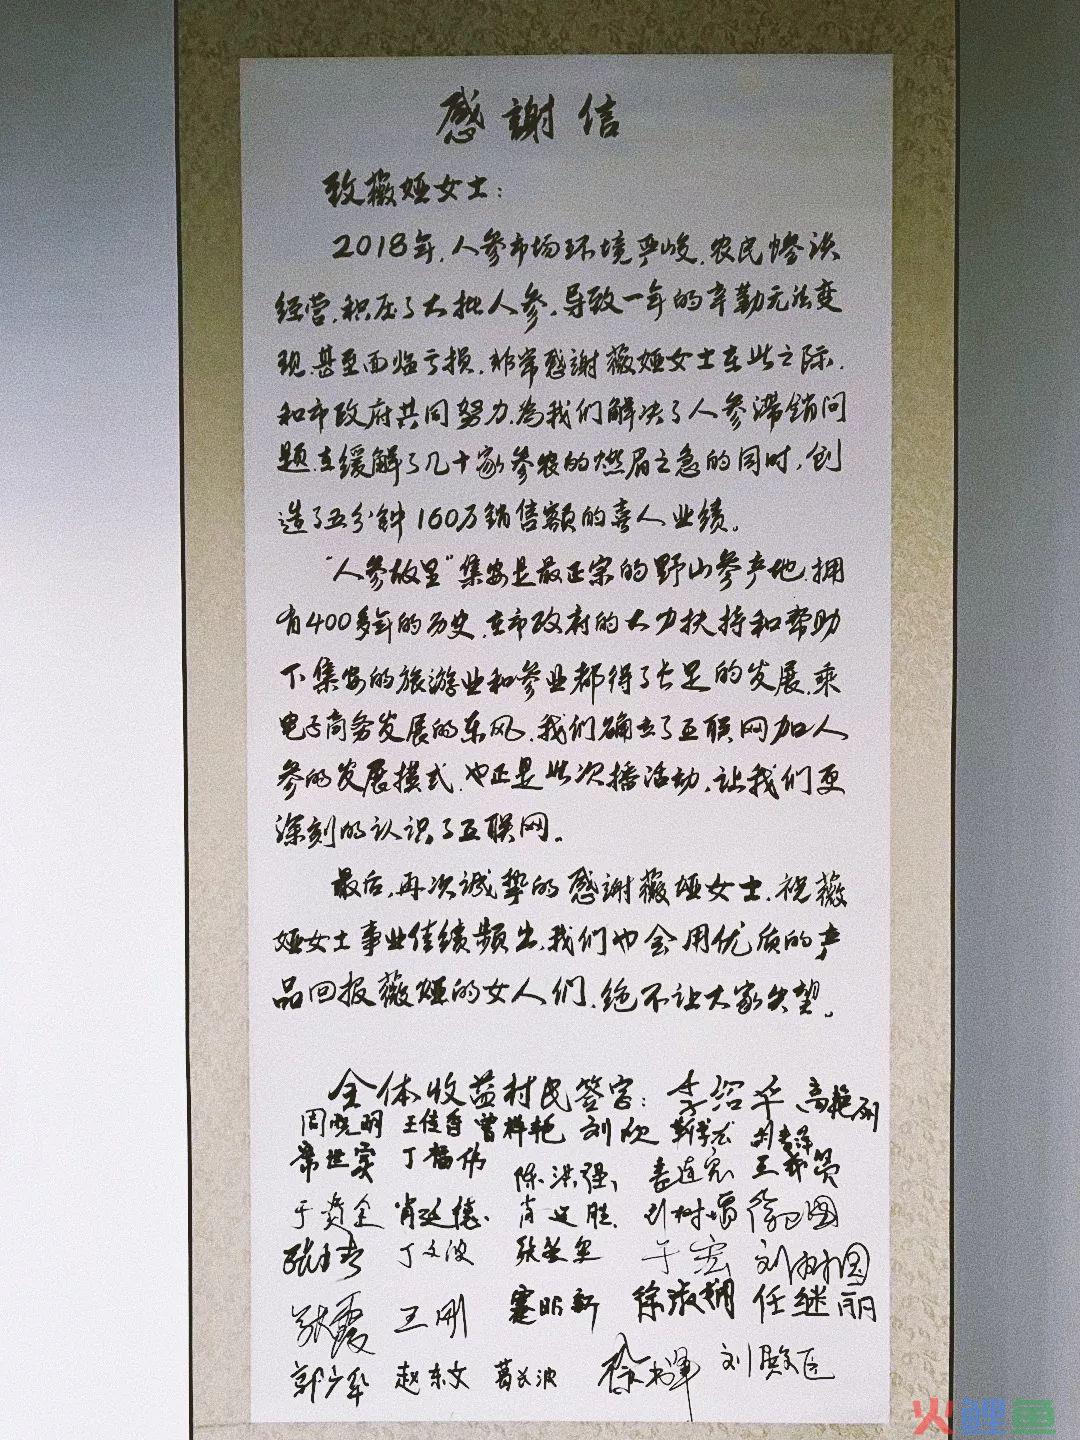 感謝信
致薇娅女士：
2018年，人参市场环境严峻，农民惨淡
经营，积压了大批人参，导致一年的辛勤无法变
现，甚至面临亏损，非常感謝薇娅女士在此之际，
和市政府共同努力，为我们解决了人参滞销问
题，在缓解了几十家参农的燃眉之急的同时，创
造了五分钟160万销售额的喜人业绩。
“人参故里”集安是最正宗的野山参产地，拥
有400多年的历史，在市政府的大力扶持和帮助
下集安的旅游业和参业都得了长足的发展，乘
电子商务发展的东风，我们确立了互联网加人
参的发展模式，也正是此次播活动，让我们更
深刻的认识了互联网。
最后，再次诚挚的感謝薇娅女士，祝薇
娅女士事业佳绩频出，我们也会用优质的产
品回报薇娅的女人们，绝不让大家失望。
全体收益村民签字：李绍平 高艳
周晓明 王佳 曾祥艳 刘欣
常世 丁福伟 陈洪强 王
于贵全 肖延德 肖 胜 徐卫国
丁文波 张 于宏 刘树国
张霞 王刚 蹇昕新 徐淑娟 任继丽
郭广军 赵东文 葛长波 徐 刘殿臣
火鲤鱼